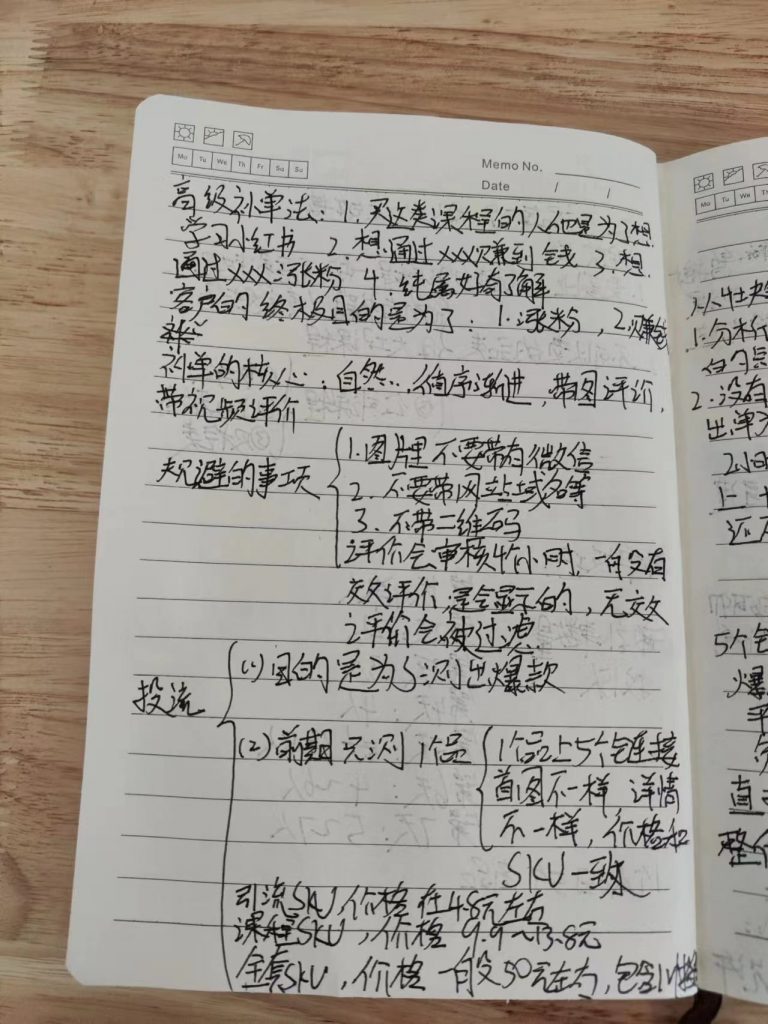 Mo Tu We Th Fr Sa Su
Memo No.
Date / /
高级补单法：1. 买这类课程的人他是为了想
学习小红书 2. 想通过xxx赚到钱 3. 想
通过xxx涨粉 4. 纯属好奇了解
客户的终极目的是为了：1. 涨粉，2. 赚钱
补单的核心：自然..，循序渐进，带图评价，
带视频评价
规避的事项
1. 图片里不要带有微信
2. 不要带网站域名等
3. 不带二维码
评价会审核4个小时，一般没有
效评价，是会显示的，无效
评价会被过滤
投流
(1) 目的是为了测出爆款
(2) 前期只测1个品
1个品上5个链接
首图不一样 详情
不一样，价格和
SKU一致
引流SKU，价格在4.8元左右
课程SKU，价格 9.9~13.8元
全套SKU，价格一般50元左右，包含
Mo Tu We Th
1. 分析
2. 没有
出单
5个
爆
整个